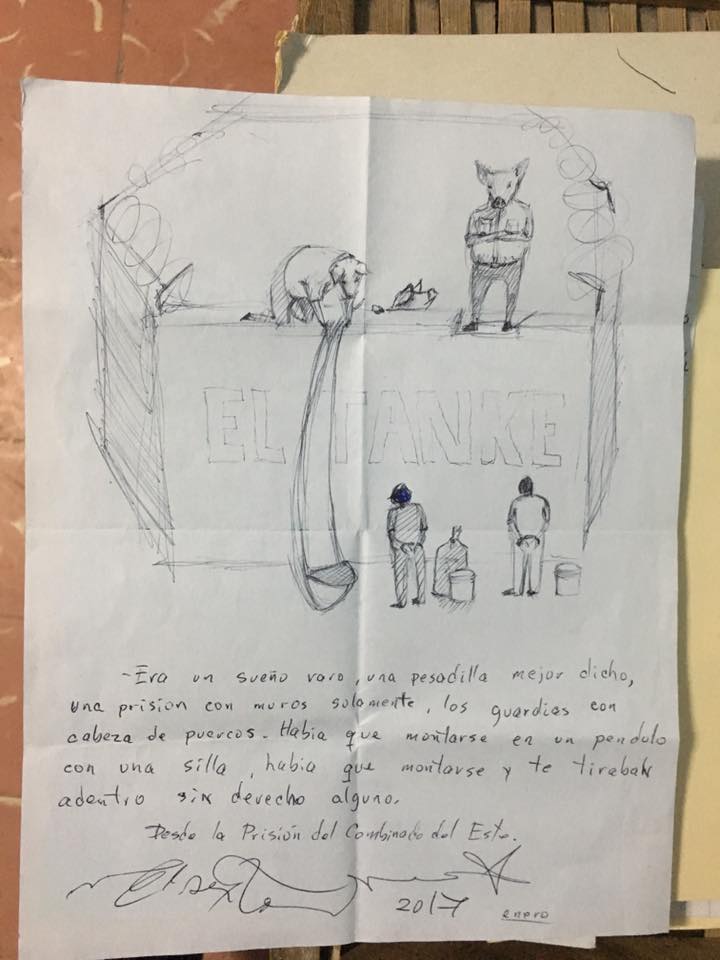 EL TANKE
-Era un sueño raro, una pesadilla mejor dicho,
una prision con muros solamente, los guardias con
cabeza de puercos. Habia que montarse en un pendulo
con una silla, habia que montarse y te tiraban
adentro sin derecho alguno.
Desde la Prisión del Combinado del Este.
2017 enero